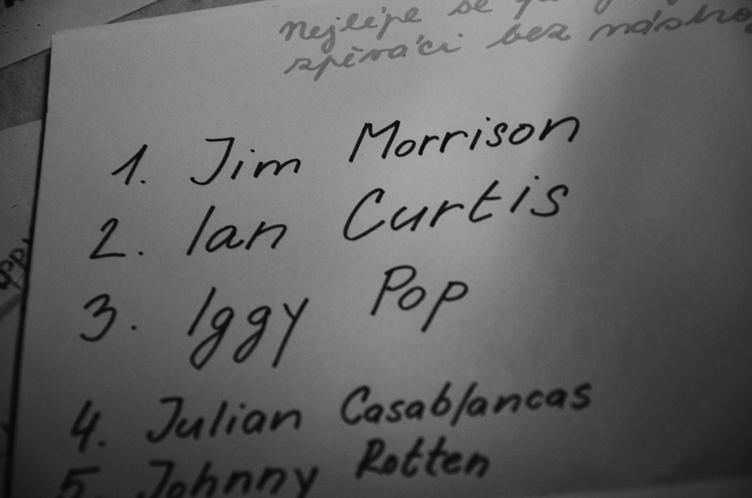 nejlépe se
zpěváci bez nástro
1. Jim Morrison
2. Ian Curtis
3. Iggy Pop
4. Julian Casablancas
5. Johnny Rotten